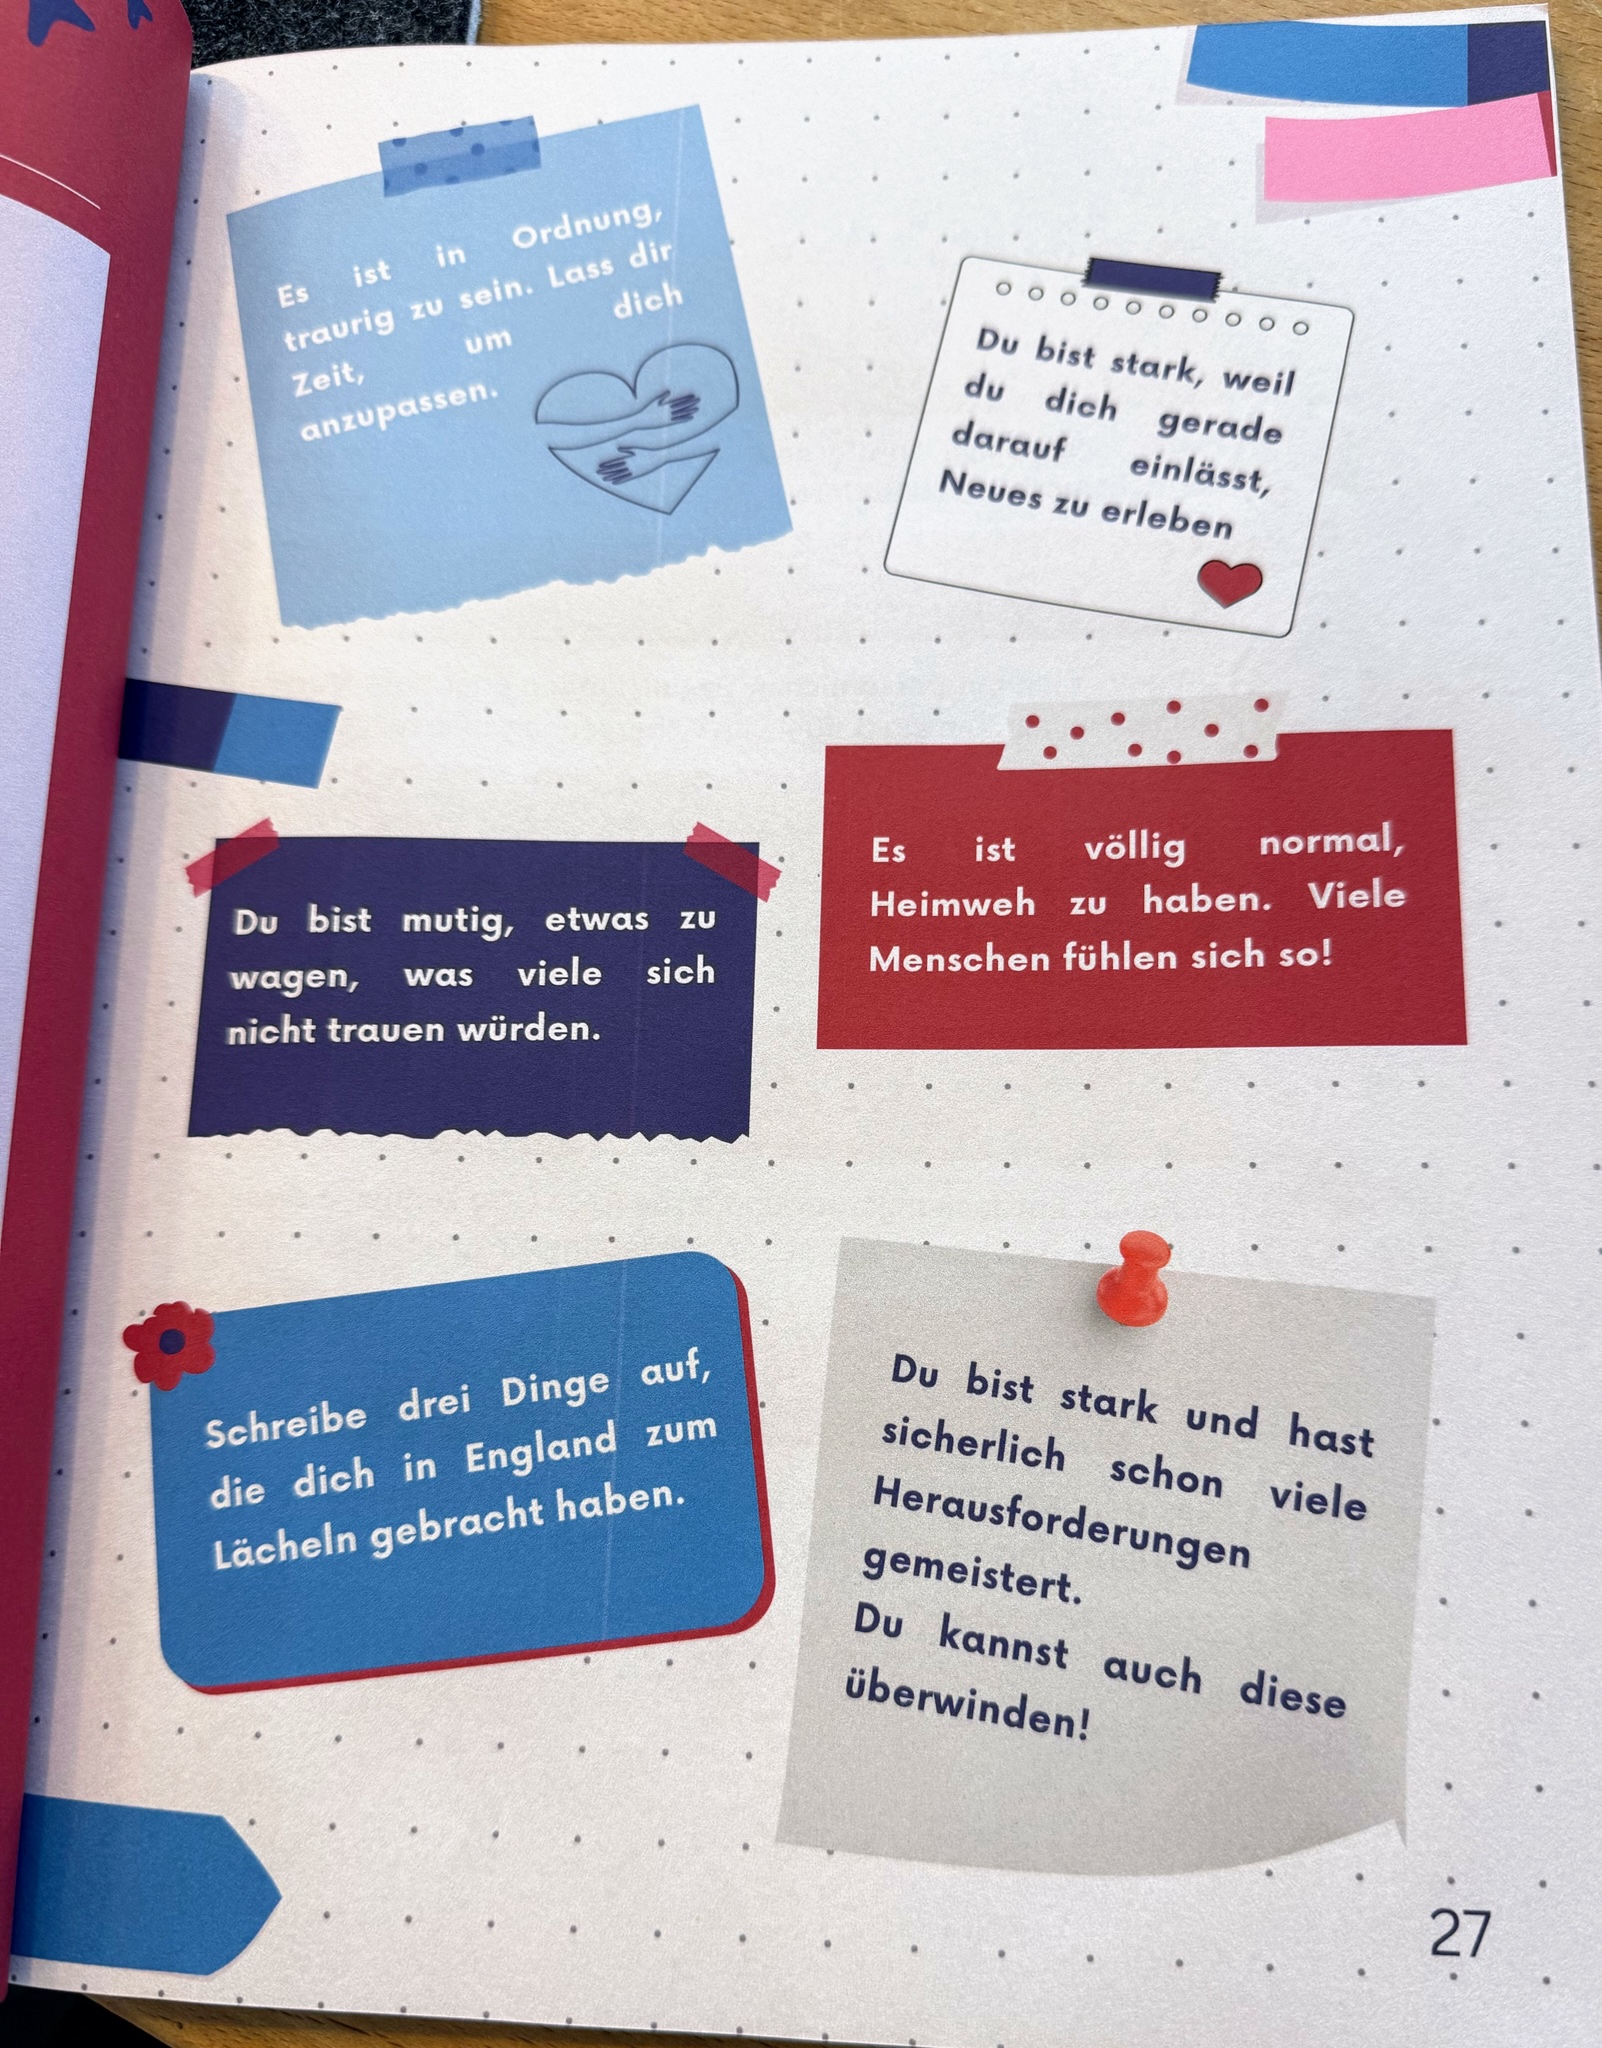 Es ist in Ordnung,
traurig zu sein. Lass dir
Zeit, um dich
anzupassen.
Du bist stark, weil
du dich gerade
darauf einlässt,
Neues zu erleben
Du bist mutig, etwas zu
wagen, was viele sich
nicht trauen würden.
Es ist völlig normal,
Heimweh zu haben. Viele
Menschen fühlen sich so!
Schreibe drei Dinge auf,
die dich in England zum
Lächeln gebracht haben.
Du bist stark und hast
sicherlich schon viele
Herausforderungen
gemeistert.
Du kannst auch diese
überwinden!
27